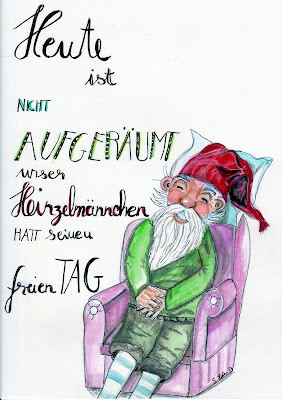 Heute
ist
NICHT
AUFGERÄUMT
unser
Hinzelmännchen
HATT seinen
freien TAG